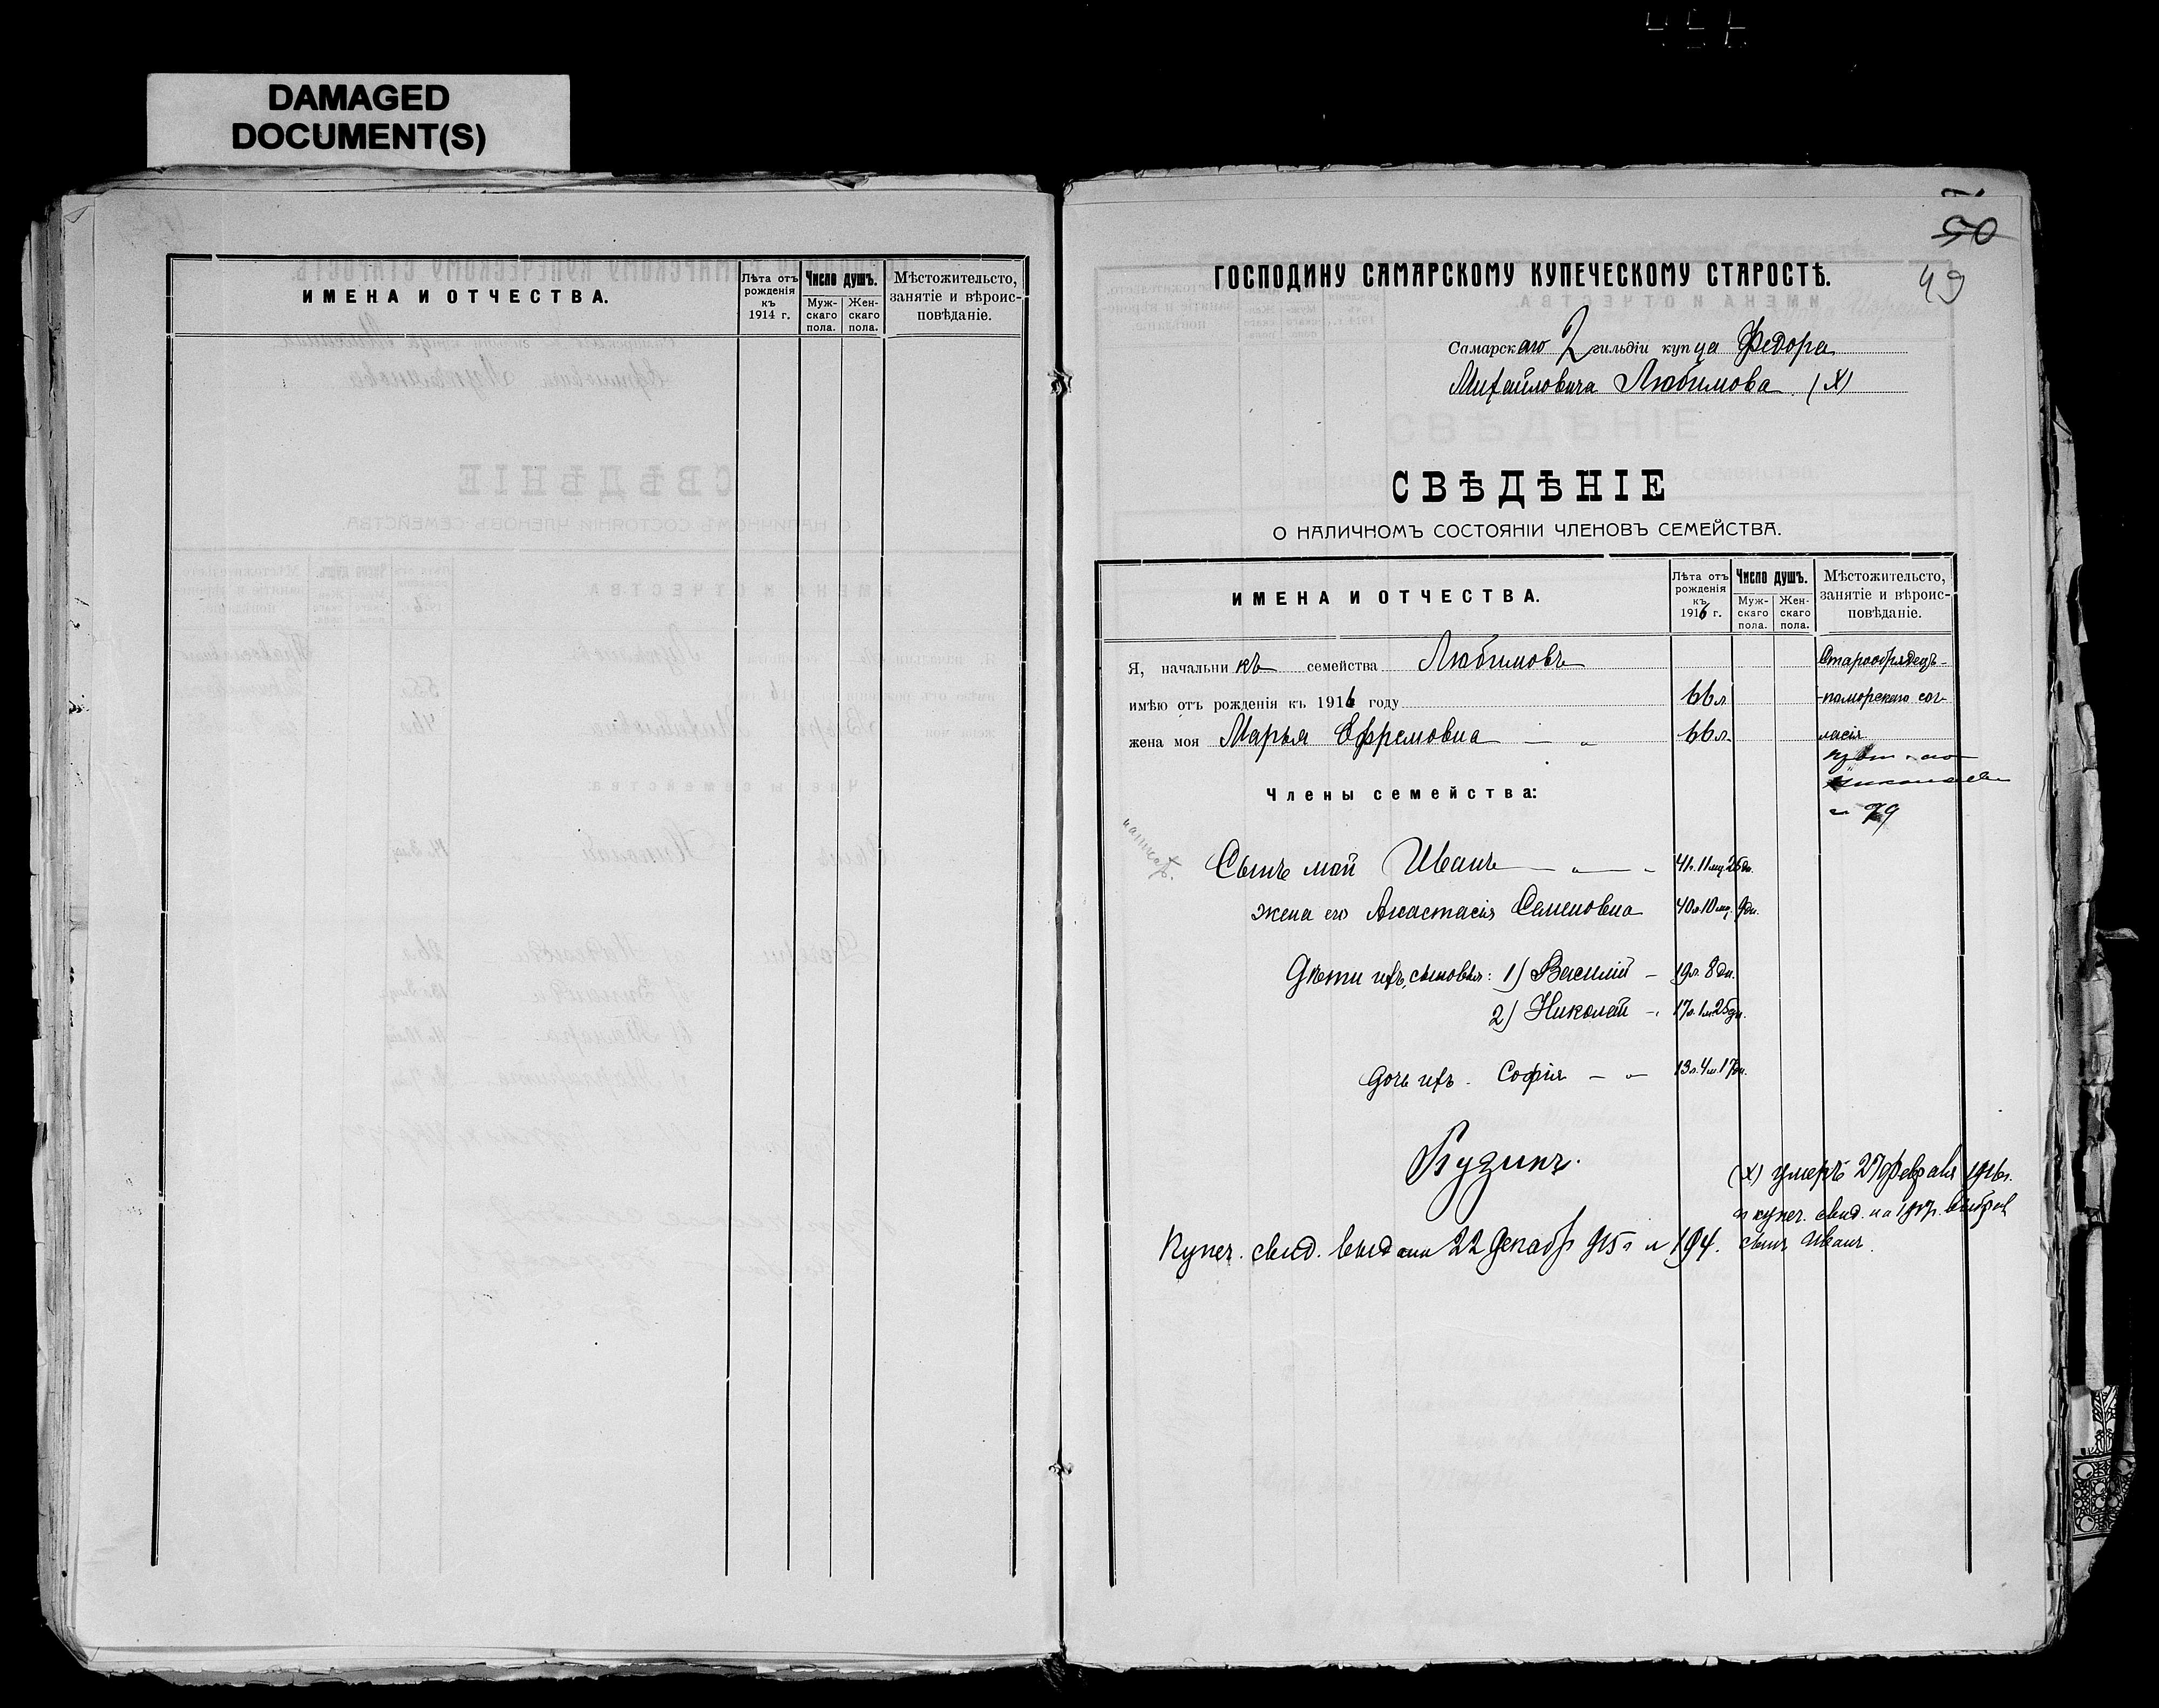 DAMAGED
DOCUMENT(S)
ИМЕНА И ОТЧЕСТВА.
Лѣта отъ рожденія къ 1914 г.
Число душъ.
Муж-скаго пола.
Жен-скаго пола.
Мѣстожительсто, занятіе и вѣроис-повѣданіе.
50
49
ГОСПОДИНУ САМАРСКОМУ КУПЕЧЕСКОМУ СТАРОСТѢ.
Самарскаго 2 гильдіи купца Федора
Михайловича Любимова (X)
СВѢДѢНІЕ
О НАЛИЧНОМЪ СОСТОЯНІИ ЧЛЕНОВЪ СЕМЕЙСТВА.
ИМЕНА И ОТЧЕСТВА.
Лѣта отъ рожденія къ 1916 г.
Число душъ.
Муж-скаго пола.
Жен-скаго пола.
Мѣстожительсто, занятіе и вѣроис-повѣданіе.
Я, начальникъ семейства Любимовъ Старообрядецъ
имѣю отъ рожденія къ 1916 году 66 л поморскаго сог-
жена моя Марья Ефремовна — " 66 л. ласія
Члены семейства:
№ 79
Сынъ мой Иванъ — " — " 41 г. 11 мц. 26 дн.
жена его Анастасія Семеновна 40 л. 10 мц. 9 дн.
Дѣти ихъ, сыновья: 1) Василій — 19 л. 8 дн.
2) Николай — 17 л. 1 м. 25 дн.
дочь ихъ. Софія — " 13 л. 4 м. 17 дн.
(X) умеръ 27 февраля 1916 г.
и купеч. свид. на 1917 г. выбралъ
сынъ Иванъ.
Купеч. свид. выдано 22 Декабр 915 г № 194.